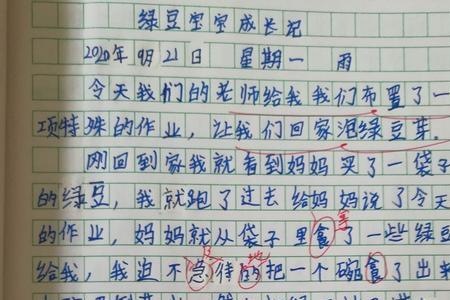 绿豆宝宝成长记
2020年9月21日 星期一 雨
今天我们的老师给我我们布置了一
项特殊的作业，让我们回家泡绿豆芽。
刚回到家我就看到妈妈买了一袋子
的绿豆，我就跑了过去给妈妈说了今天
的作业，妈妈就从袋子里盒了一些绿豆
给我，我迫不急待的把一个碗盒了出来